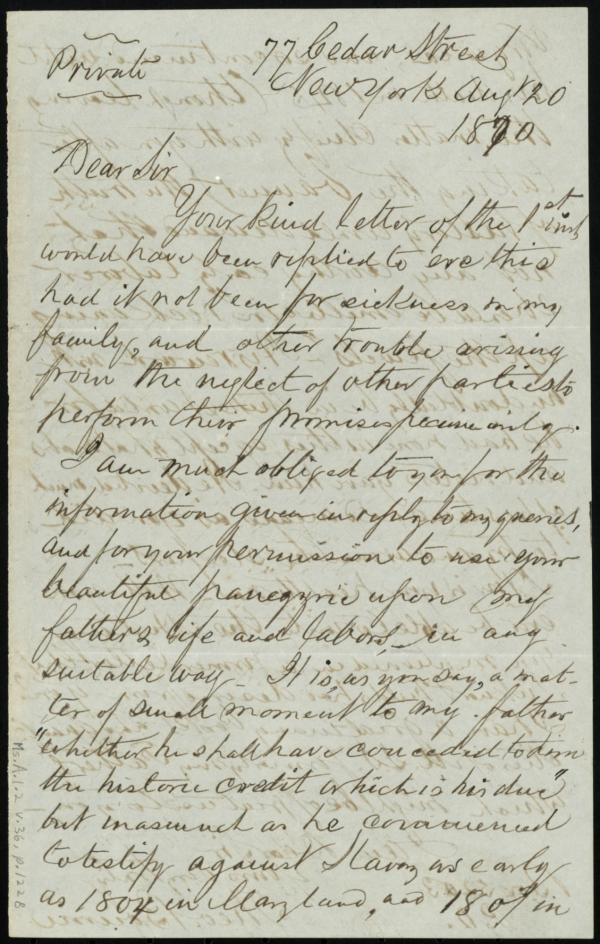 Private
77 Cedar Street
New York Augt 20
1870
Dear Sir
Your kind letter of the 1st inst
would have been replied to ere this
had it not been for sickness in my
family, and other trouble arising
from the neglect of other parties to
perform their promises pecuniarily.
I am much obliged to you for the
information given in reply to my queries,
and for your permission to use your
beautiful panegyric upon my
father's life and labors, in any
suitable way - It is, as you say, a mat-
ter of small moment to my father
"whether he shall have conceded to him
the historic credit which is his due"
but inasmuch as he commenced
to testify against Slavery as early
as 1804 in Maryland, and 180 in
Ms.A.1.2 v.36, p.122B